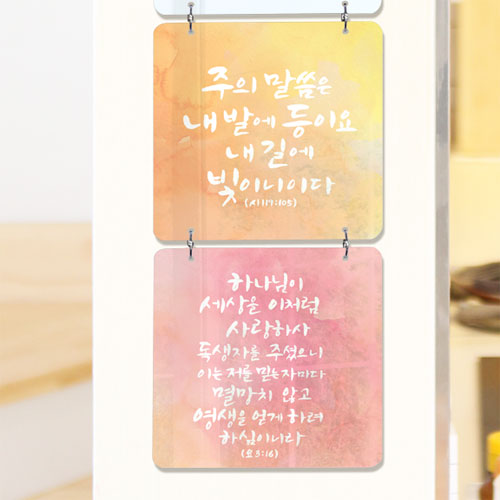 주의 말씀은
내 발에 등이요
내 길에
빛이니이다
(시117:105)
하나님이
세상을 이처럼
사랑하사
독생자를 주셨으니
이는 저를 믿는자마다
멸망치 않고
영생을 얻게 하려
하심이니라
(요 3:16)